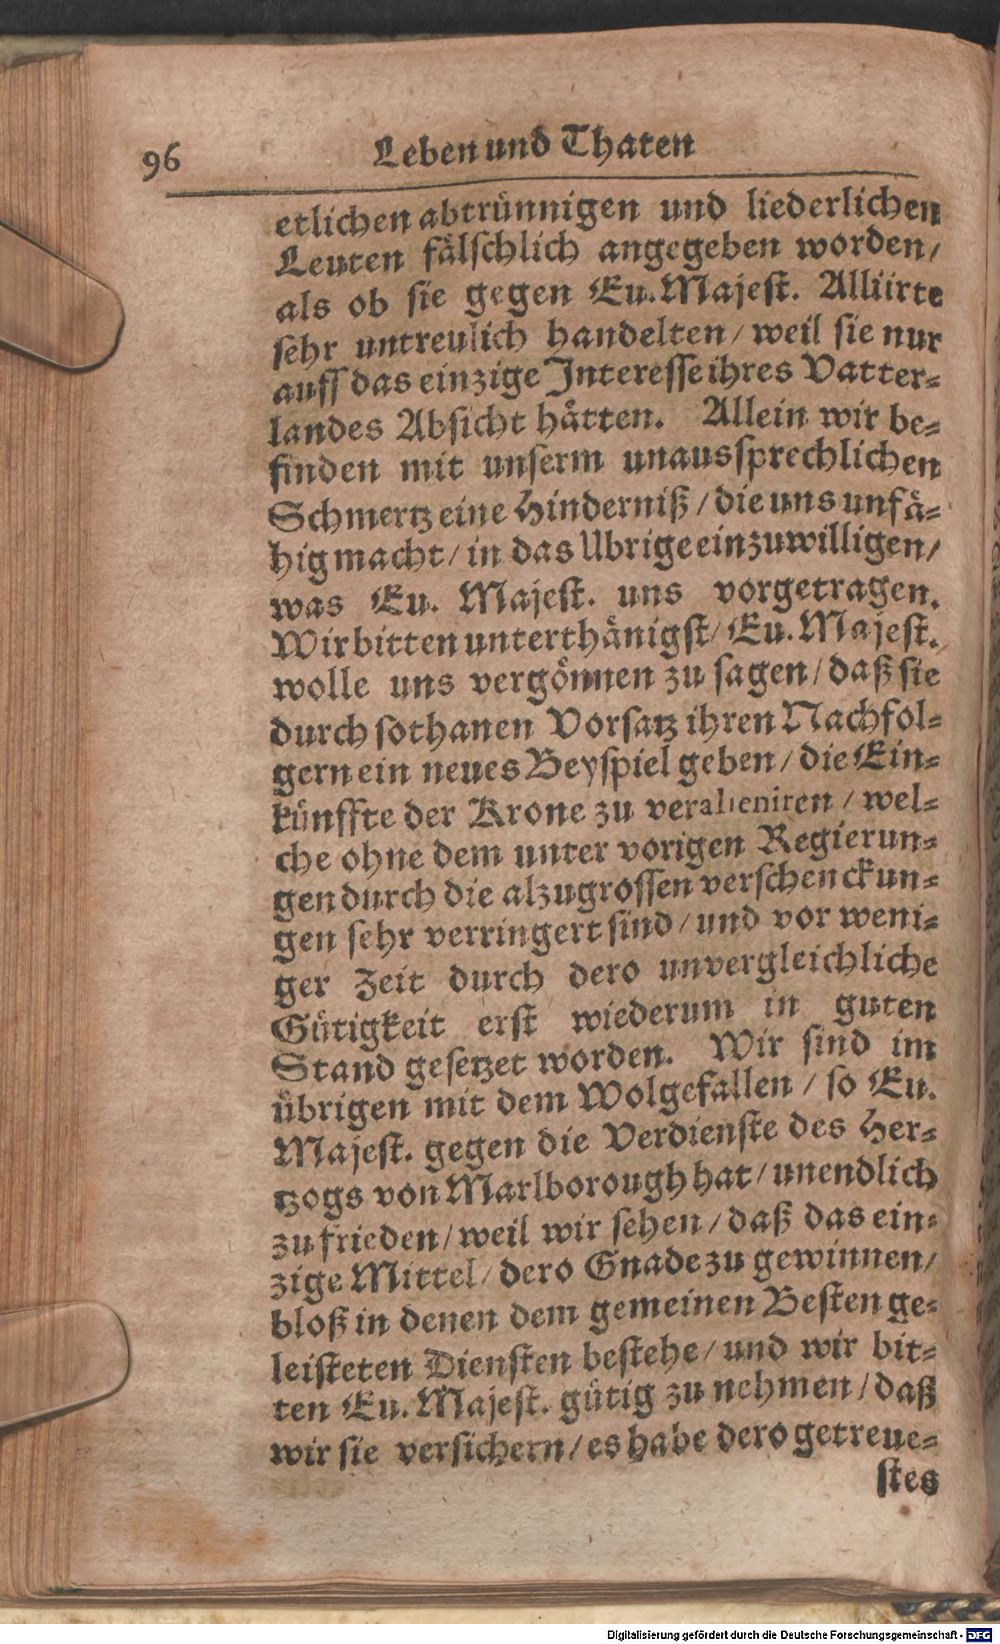 96 Leben und Thaten
etlichen abtrünnigen und liederlichen
Leuten fälschlich angegeben worden/
als ob sie gegen Eu. Majest. Alliirte
sehr untreulich handelten / weil sie nur
auff das einzige Interesse ihres Vatter-
landes Absicht hätten. Allein wir be-
finden mit unserm unaussprechlichen
Schmertz eine Hinderniß / die uns unfä-
hig macht / in das Ubrige einzuwilligen/
was Eu. Majest. uns vorgetragen.
Wir bitten unterthänigst / Eu. Majest.
wolle uns vergönnen zu sagen / daß sie
durch sothanen Vorsatz ihren Nachfol-
gern ein neues Beyspiel geben / die Ein-
künffte der Krone zu veralieniren / wel-
che ohne dem unter vorigen Regierun-
gen durch die alzugrossen verschenckun-
gen sehr verringert sind / und vor weni-
ger Zeit durch dero unvergleichliche
Gütigkeit erst wiederum in guten
Stand gesetzet worden. Wir sind im
übrigen mit dem Wolgefallen / so Eu.
Majest. gegen die Verdienste des Her-
tzogs von Marlborough hat / unendlich
zu frieden / weil wir sehen / daß das ein-
zige Mittel / dero Gnade zu gewinnen/
bloß in denen dem gemeinen Besten ge-
leisteten Diensten bestehe / und wir bit-
ten Eu. Majest. gütig zu nehmen / daß
wir sie versichern / es habe dero getreue-
stes
Digitalisierung gefördert durch die Deutsche Forschungsgemeinschaft - DFG